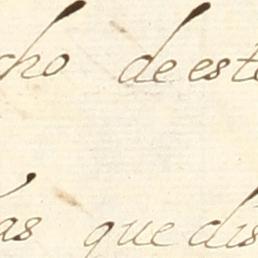 cho de este
as que dis